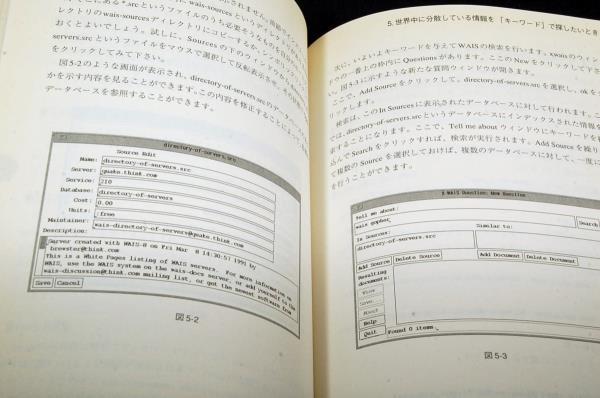 されません。
にある*.srcというファイルのうち必要そうなもの
レクトリのwais-sourcesディレクトリにコピーするか、シンボリック
おくとよいでしょう。試しに、Sourcesの下のウィンドウ
servers.srcというファイルをマウスで選択して反転表示させ、
をクリックしてみて下さい。
図5-2のような画面が表示され、directory-of-servers.srcのデータベース
かを示す内容を見ることができます。この内容を修正することによって、
データベースを参照することができます。
directory-of-servers.src
Source Edit
Name: directory-of-servers.src
Server: quake.think.com
Service: 210
Database: directory-of-servers
Cost: 0.00
Units: :free
Maintainer: wais-directory-of-servers@quake.think.com
Description:
Server created with WAIS-8 on Fri Mar 8 14:30:57 1991 by
brewster@think.com
This is a White Pages listing of WAIS servers. For more information on
WAIS, use the WAIS system on the wais-docs server, or add yourself to the
wais-discussion@think.com mailing list, or get the newest software from
Save Cancel
図5-2
5. 世界中に分散している情報を「キーワード」で探したいとき
次に、いよいよキーワードを与えてWAISの検索を行います。xwaisのウィン
ドウの一番上の枠内にQuestionsがあります。ここのNewをクリックして下さ
い。図5-3に示すような新たな質問ウィンドウが開きます。
ここで、Add Sourceをクリックして、directory-of-servers.srcを選択し、okを
リックします。
検索は、このIn Sourcesに表示されたデータベースに対して行われます。こ
では、directory-of-servers.srcというデータベースにインデックスされた情報を
索することになります。ここで、Tell me aboutウィンドウにキーワードを
込んでSearchをクリックすれば、検索が実行されます。Add Sourceを繰り
て複数のSourceを選択しておけば、複数のデータベースに対して、一度に
を行うことができます。
X WAIS Question: New Question
Tell me about:
wais gopher
Search
In Sources:
Similar to:
directory-of-servers.src
Add Source Delete Source Add Document Delete Document
Resulting
documents:
View
Save
Abort
Help
Quit Found 0 items.
図5-3